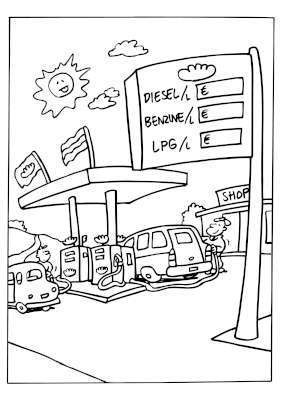 DIESEL/L €
BENZINE/L €
LPG/L €
SHOP